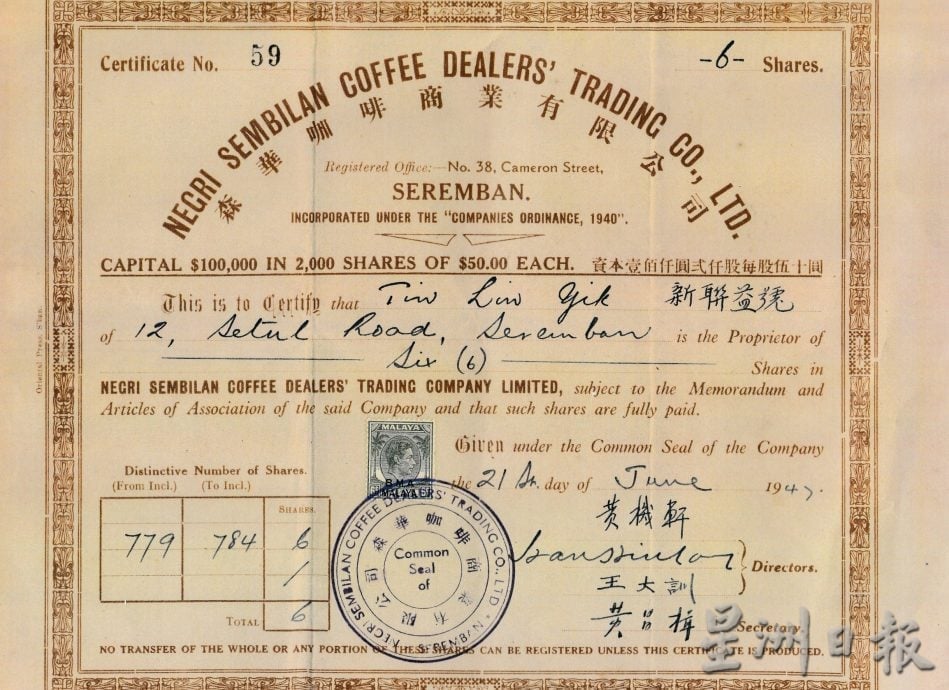 Certificate No. 59
-6- Shares.
NEGRI SEMBILAN COFFEE DEALERS' TRADING CO., LTD.
森華咖啡商業有限公司
Registered Office:—No. 38, Cameron Street,
SEREMBAN.
INCORPORATED UNDER THE "COMPANIES ORDINANCE, 1940".
CAPITAL $100,000 IN 2,000 SHARES OF $50.00 EACH. 資本壹佰仟圓弍仟股每股伍十圓
This is to Certify that Tin Lin Yik 新聯益號
of 12, Setul Road, Seremban is the Proprietor of
Six (6) Shares in
NEGRI SEMBILAN COFFEE DEALERS' TRADING COMPANY LIMITED, subject to the Memorandum and
Articles of Association of the said Company and that such shares are fully paid.
MALAYA
BMA
MALAYA
Given under the Common Seal of the Company
the 21st. day of June 1947.
Distinctive Number of Shares.
(From Incl.) (To Incl.) SHARES
779 784 6
1
TOTAL 6
NEGRI SEMBILAN COFFEE DEALERS' TRADING CO., LTD
SEREMBAN
森華咖啡商業有限公司
Common
Seal
of
黄機軒
Directors.
王大訓
黄昌
Secretary.
NO TRANSFER OF THE WHOLE OR ANY PORTION OF THESE SHARES CAN BE REGISTERED UNLESS THIS CERTIFICATE IS PRODUCED.
Oriental Press, S'ban.
星洲日報